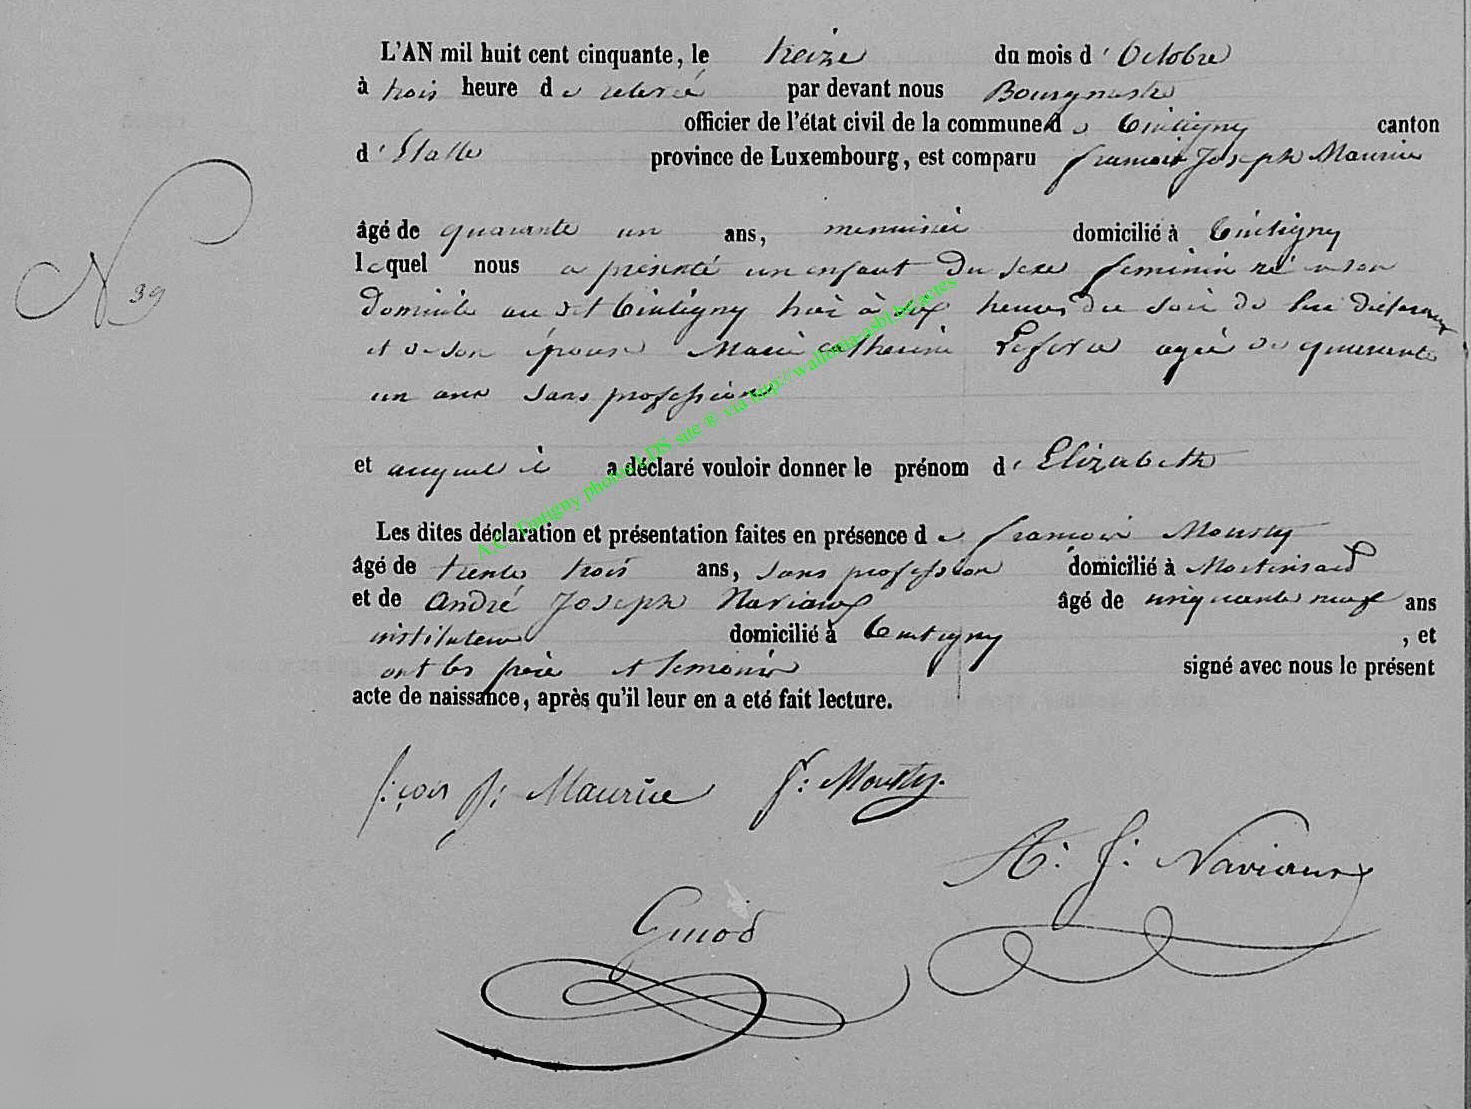 L'AN mil huit cent cinquante, le treize du mois d'Octobre
à trois heure de relevée par devant nous Bourgmestre
officier de l'état civil de la commune de Tintigny canton
d'Etalle province de Luxembourg, est comparu francois Joseph Maurice
âgé de quarante un ans, menuisier domicilié à Tintigny
N 39
lequel nous a présenté un enfant du sexe féminin né a son
domicile au dit Tintigny hier à heures du soir de lui déclarant
et de son épouse Marie Catherine Lefevre agée de quarante
un ans sans profession
et auquel il a déclaré vouloir donner le prénom d'Elizabeth
Les dites déclaration et présentation faites en présence de françois Mousty
âgé de trente trois ans, sans profession domicilié à Martinsard
et de André Joseph Naviaux âgé de cinquante neuf ans
instituteur domicilié à Tintigny , et
ont les père et temoins signé avec nous le présent
acte de naissance, après qu'il leur en a eté fait lecture.
f:çois J: Maurice f: Mousty.
A: J: Naviaux
Guiod
A.C. Tintigny photos LDS site ® via http://wallonia-asbl.be/actes